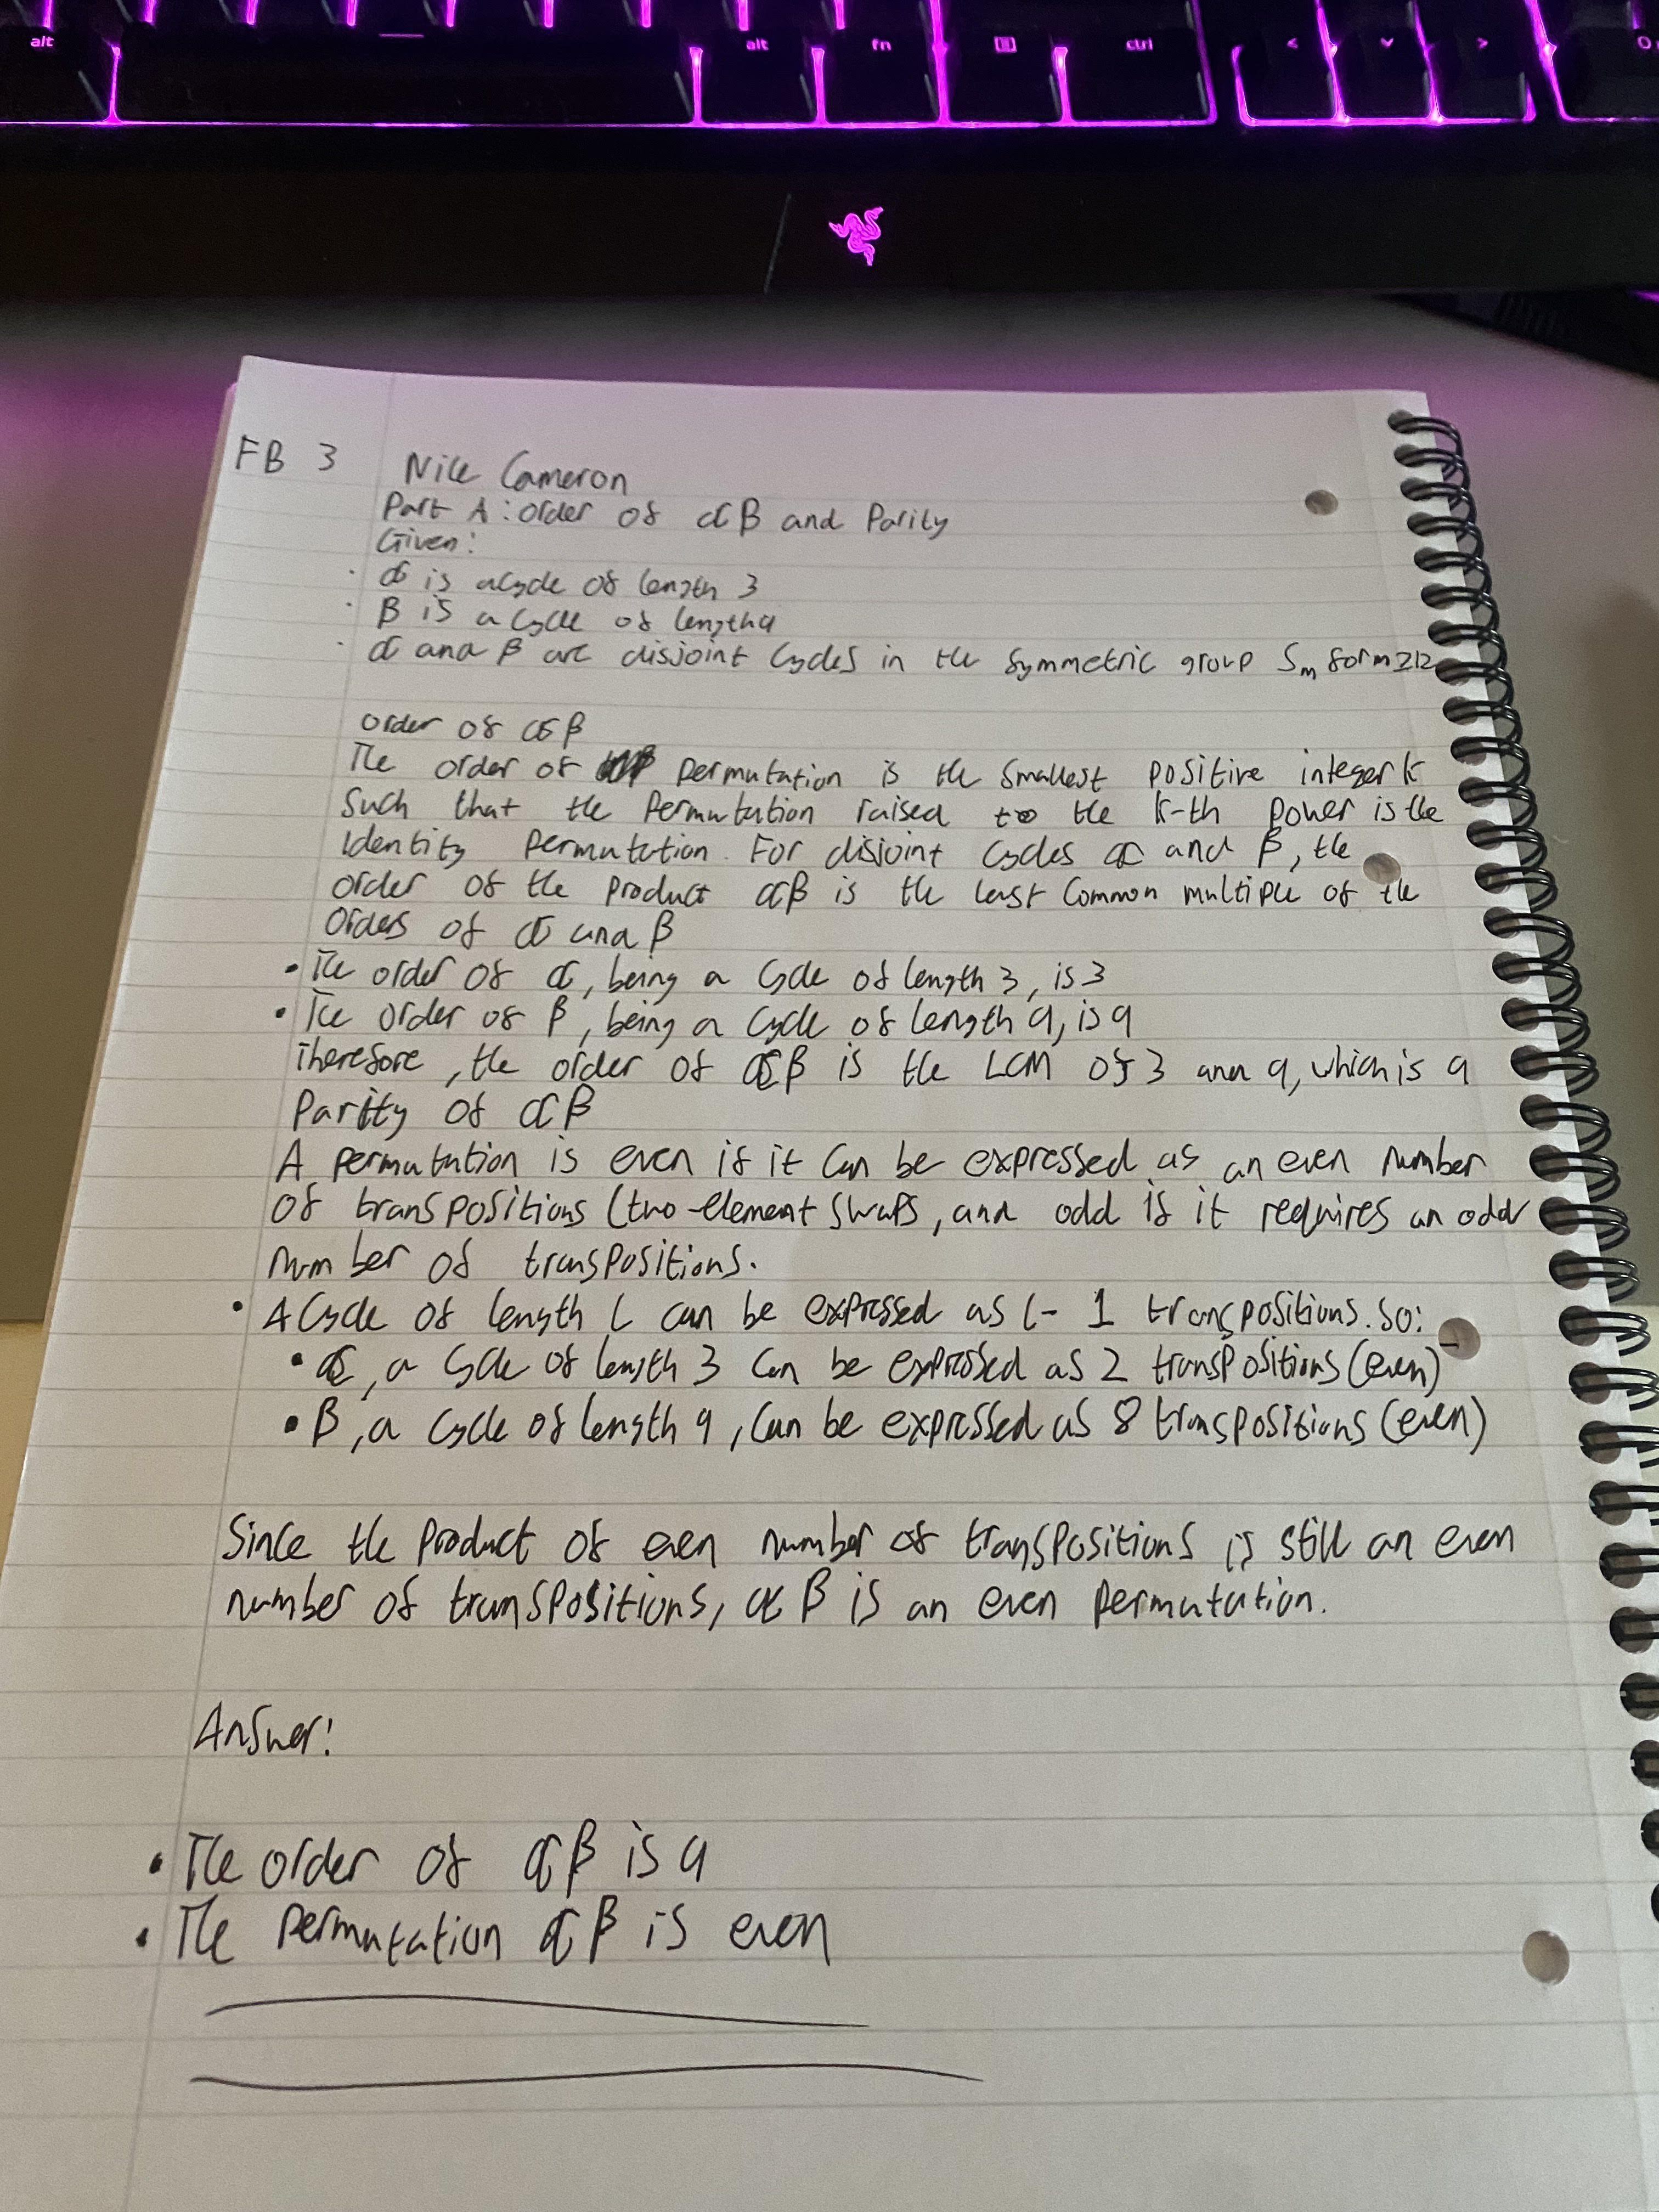 alt
alt fn ctrl < >
FB 3 Nile Cameron
Part A: order of αβ and Parity
Given:
· α is a cycle of length 3
· β is a cycle of length 9
· α and β are disjoint cycles in the symmetric group Sm for m≥12
order of αβ
The order of permutation is the smallest positive integer k
such that the permutation raised to the k-th power is the
identity permutation. For disjoint cycles α and β, the
order of the product αβ is the least common multiple of the
orders of α and β
• The order of α, being a cycle of length 3, is 3
• The order of β, being a cycle of length 9, is 9
Therefore, the order of αβ is the LCM of 3 and 9, which is 9
Parity of αβ
A permutation is even if it can be expressed as an even number
of transpositions (two-element swaps, and odd if it requires an odd
number of transpositions.
• A cycle of length L can be expressed as L- 1 transpositions. so:
• α, a cycle of length 3 can be expressed as 2 transpositions (even)
• β, a cycle of length 9, can be expressed as 8 transpositions (even)
Since the product of even number of transpositions is still an even
number of transpositions, αβ is an even permutation.
Answer:
• The order of αβ is 9
• The permutation αβ is even